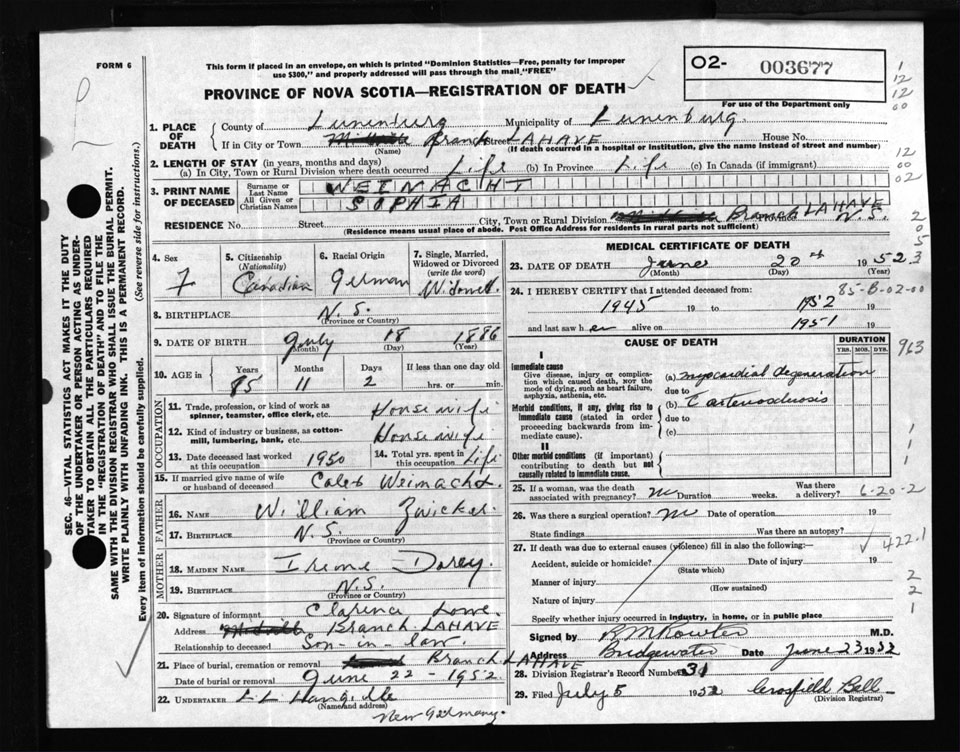 FORM 6
This form if placed in an envelope, on which is printed "Dominion Statistics—Free, penalty for improper
use $300," and properly addressed will pass through the mail "FREE"
PROVINCE OF NOVA SCOTIA—REGISTRATION OF DEATH
O2- 003677
For use of the Department only
1. PLACE OF DEATH County of Lunenburg Municipality of Lunenburg
If in City or Town Branch LAHAVE Street House No.
(Name) (If death occurred in a hospital or institution, give the name instead of street and number)
2. LENGTH OF STAY (in years, months and days)
(a) In City, Town or Rural Division where death occurred Life (b) In Province Life (c) In Canada (if immigrant)
3. PRINT NAME OF DECEASED Surname or Last Name WEINACHT
All Given or Christian Names SOPHIA
RESIDENCE No. Street City, Town or Rural Division Branch LAHAVE N.S.
(Residence means usual place of abode. Post Office Address for residents in rural parts not sufficient)
SEC. 46—VITAL STATISTICS ACT MAKES IT THE DUTY
OF THE UNDERTAKER OR PERSON ACTING AS UNDER-
TAKER TO OBTAIN ALL THE PARTICULARS REQUIRED
IN THE "REGISTRATION OF DEATH" AND TO FILE THE
SAME WITH THE DIVISION REGISTRAR WHO SHALL ISSUE THE BURIAL PERMIT.
WRITE PLAINLY WITH UNFADING INK. THIS IS A PERMANENT RECORD.
Every item of information should be carefully supplied. (See reverse side for instructions.)
4. Sex F
5. Citizenship (Nationality) Canadian
6. Racial Origin German
7. Single, Married, Widowed or Divorced (write the word) Widowed
8. BIRTHPLACE N.S.
(Province or Country)
9. DATE OF BIRTH July 18 1886
(Month) (Day) (Year)
10. AGE in Years 85 Months 11 Days 2 If less than one day old
hrs. or min.
OCCUPATION
11. Trade, profession, or kind of work as
spinner, teamster, office clerk, etc. Housewife
12. Kind of industry or business, as cotton-
mill, lumbering, bank, etc. Housewife
13. Date deceased last worked at this occupation 1950 14. Total yrs. spent in this occupation Life
15. If married give name of wife
or husband of deceased Caleb Weinacht
FATHER
16. NAME William Zwicker.
17. BIRTHPLACE N.S.
(Province or Country)
MOTHER
18. MAIDEN NAME Irene Dorey.
19. BIRTHPLACE N.S.
(Province or Country)
20. Signature of informant Clarence Lowe
Address Branch LAHAVE
Relationship to deceased Son-in-law.
21. Place of burial, cremation or removal Branch LAHAVE
Date of burial or removal June 22 - 1952
22. UNDERTAKER
(Name and address)
New Germany.
MEDICAL CERTIFICATE OF DEATH
23. DATE OF DEATH June 20th 1952
(Month) (Day) (Year)
24. I HEREBY CERTIFY that I attended deceased from:
1945 19 to 1952 19
and last saw her alive on 1951 19
CAUSE OF DEATH
DURATION
YRS. MOS. DYS.
I
Immediate cause
Give disease, injury or compli-
cation which caused death, NOT the
mode of dying, such as heart failure,
asphyxia, asthenia, etc.
(a) myocardial degeneration
due to
Morbid conditions, if any, giving rise to
immediate cause (stated in order
proceeding backwards from im-
mediate cause).
(b) arteriosclerosis
due to
(c)
II
Other morbid conditions (if important)
contributing to death but not
causally related to immediate cause.
25. If a woman, was the death
associated with pregnancy? no Duration weeks. Was there a delivery?
26. Was there a surgical operation? no Date of operation 19
State findings Was there an autopsy?
27. If death was due to external causes (violence) fill in also the following:—
Accident, suicide or homicide? Date of injury 19
(State which)
Manner of injury
(How sustained)
Nature of injury
Specify whether injury occurred in industry, in home, or in public place
Signed by M.D.
Address Bridgewater Date June 23 1952
28. Division Registrar's Record Number 31
29. Filed July 5 1952 Crosfield Bell
(Division Registrar)
1
12
12
00
12
00
02
2
0
5
3
85-B-02-00
963
1
1
1
6-20-2
422.1
2
2
1